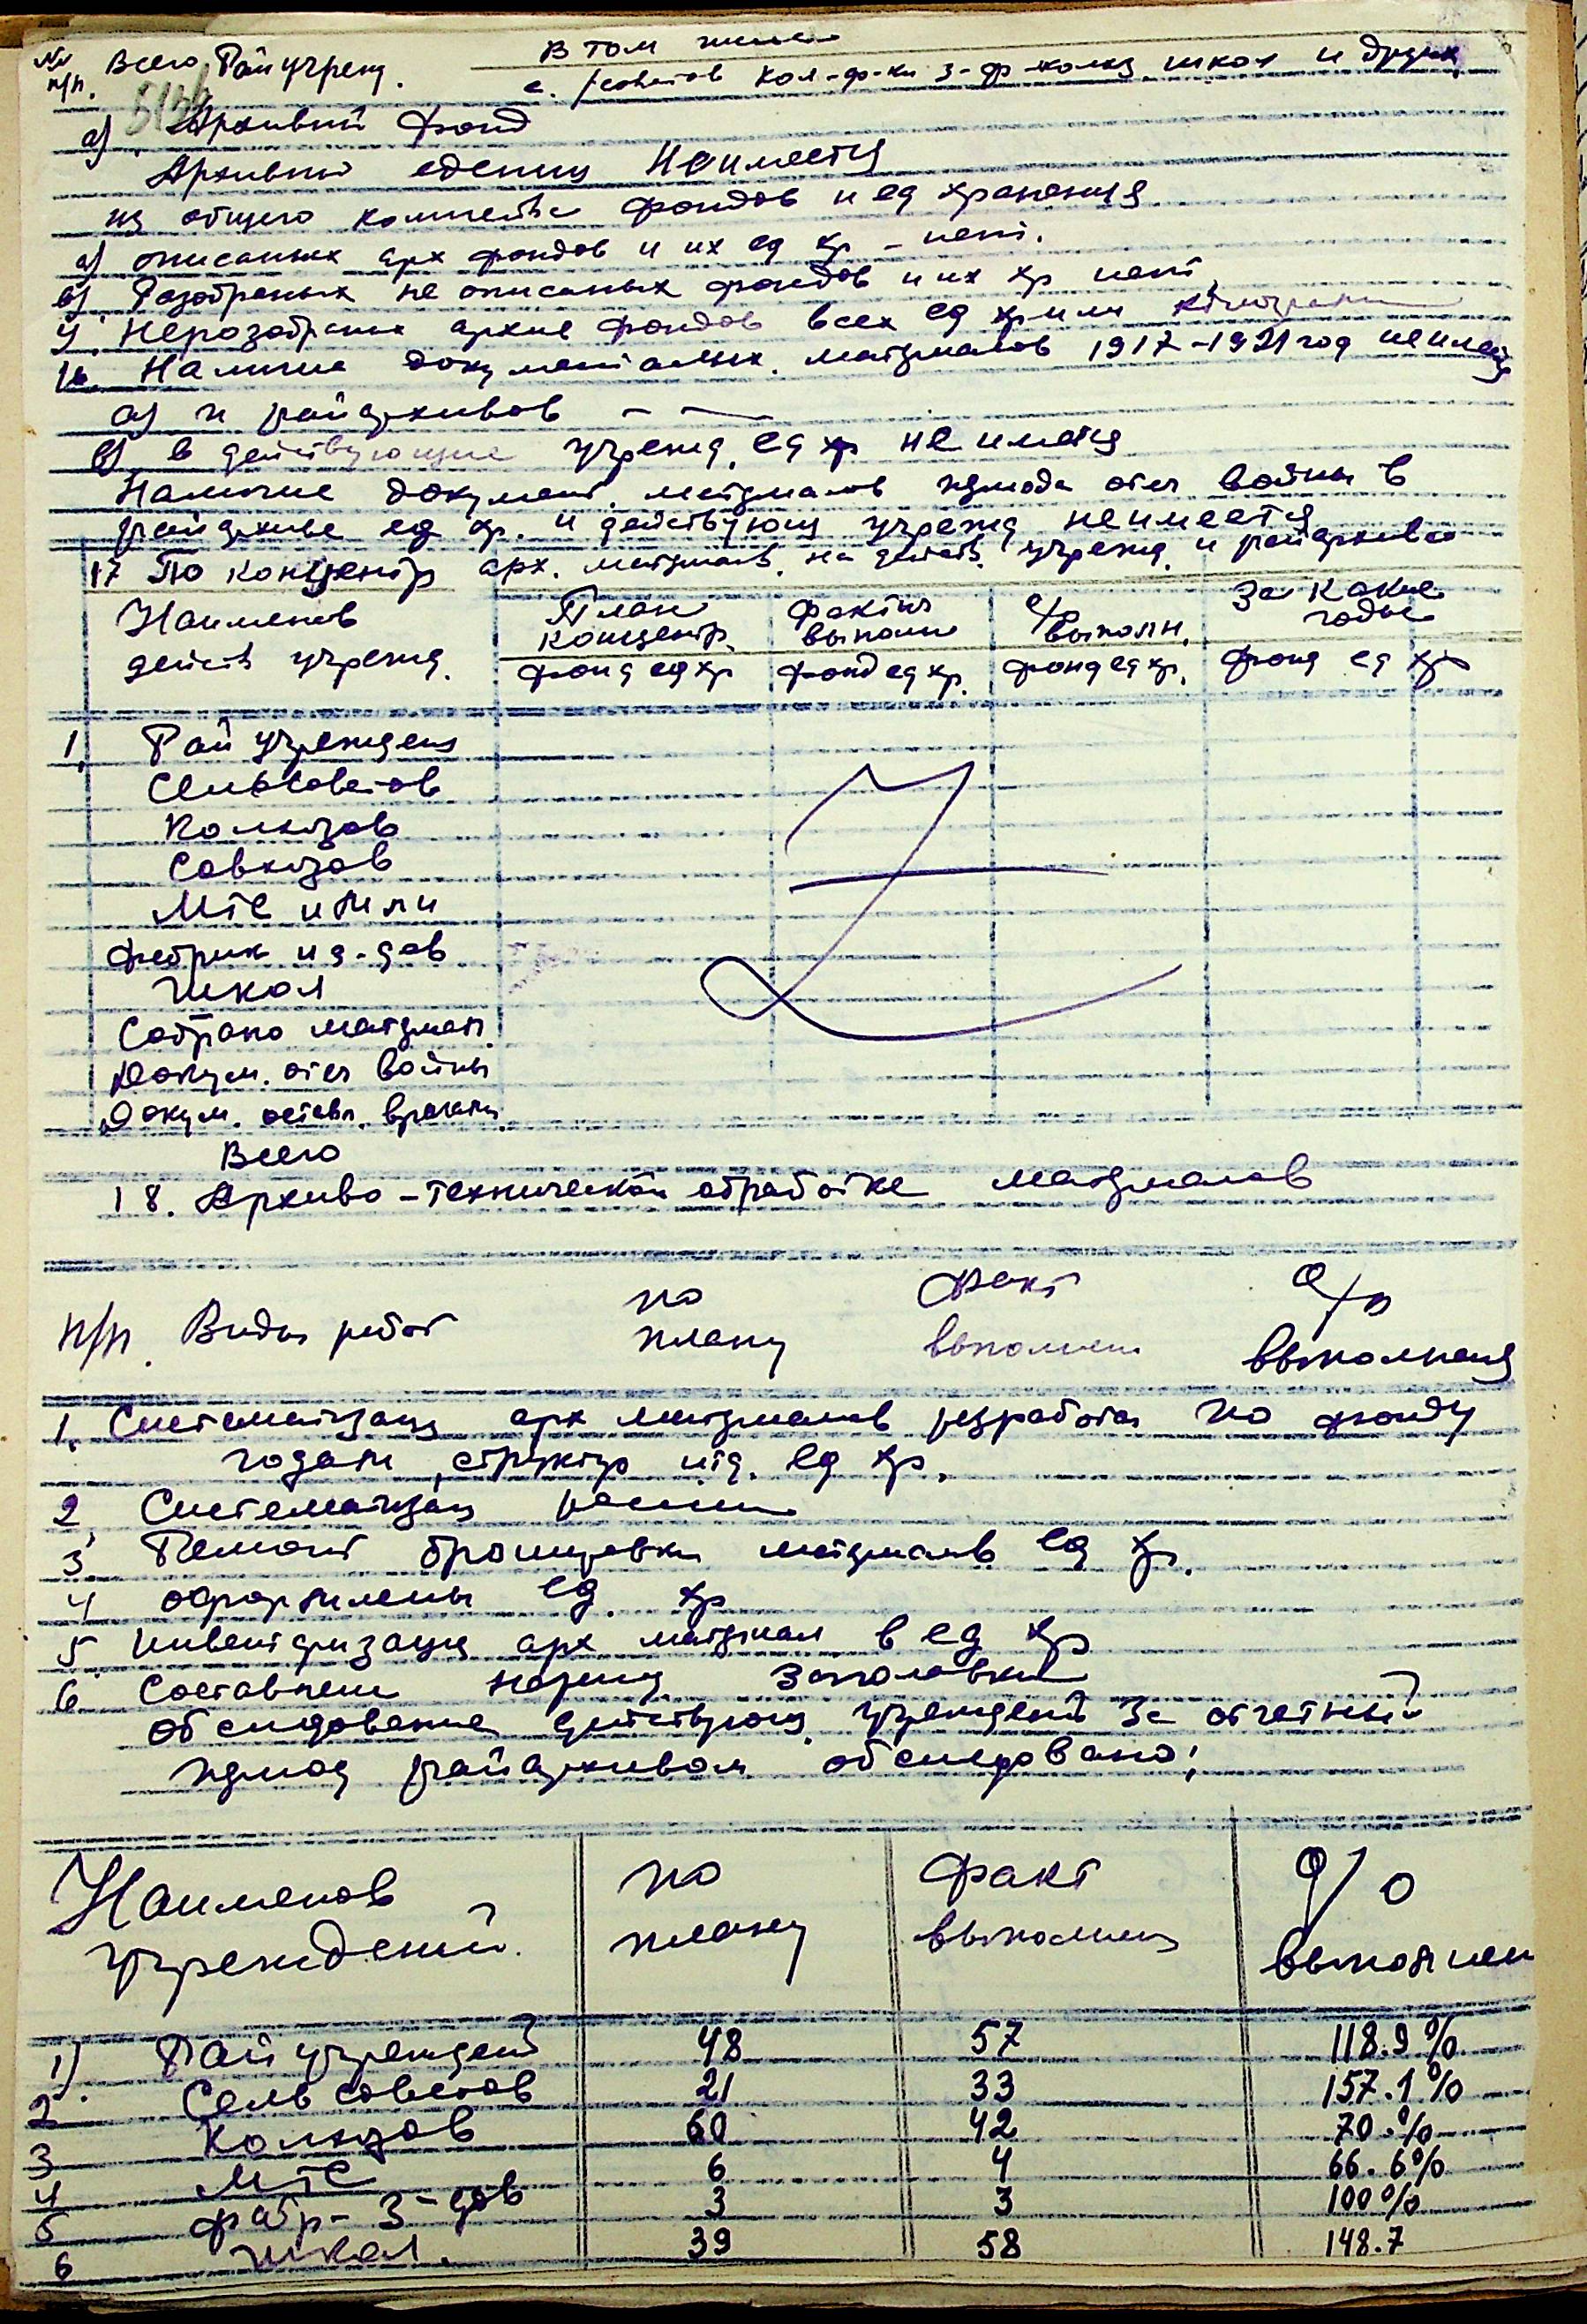 № п/п. Всего Райучрежд. В том числе
с. советов кол-ф-ки з-др школ и других
а) Архивный фонд
Архивный едениц Не имеетця
из общего количества фондов и ед хранения
а) описанных арх фондов и их ед хр - нет.
в) Разобраных не описаных фондов и их хр нет
Неразобраных архив фондов всех ед хр или
16. Наличие документальных материалов 1917-1921 год не имеетця
а) и райархивов - —
в) в действующие учрежд. ед хр не имеетця
Наличие документ. материалов периода отеч войны в
райархиве ед хр. и действующ учрежд не имеется
17 По концентр арх. материалов. на действ. учрежд. и райархива
Наименов План Фактич % За какие
концентр. выполне выполн. годы
действ учрежд. фонд ед хр фонд ед хр. фонд ед хр. фонд ед хр
1. Рай учрежден
Сельсоветов
Колхозов
Совхозов
МТС и
Фабрик и з-дов
Школ
Собрано материал.
Докум. отеч войны
Докум. оставл. врагам.
Всего
18. Архиво-технической обработке материалов
п/п. Виды работ по плану Факт выполнен % выполнения
1. Систематизация арх материалов разработан по фонду
годам, структур итд. ед хр.
2. Систематизац
3 Ремонт брошуровки материалов ед хр.
4 оформлены ед. хр
5 инвентаризация арх материал в ед хр
6. Составлен
обследование действующ. учреждений за отчетный
период райархивом обследовано;
Наименов учреждений. по плану факт выполнен % выполнен
1) Рай учреждений 48 57 118.9%
2. Сельсоветов 21 33 157.1%
3 Колхозов 60 42 70.%
4 МТС 6 4 66.6%
5 фабр-з-дов 3 3 100%
6 школ. 39 58 148.7